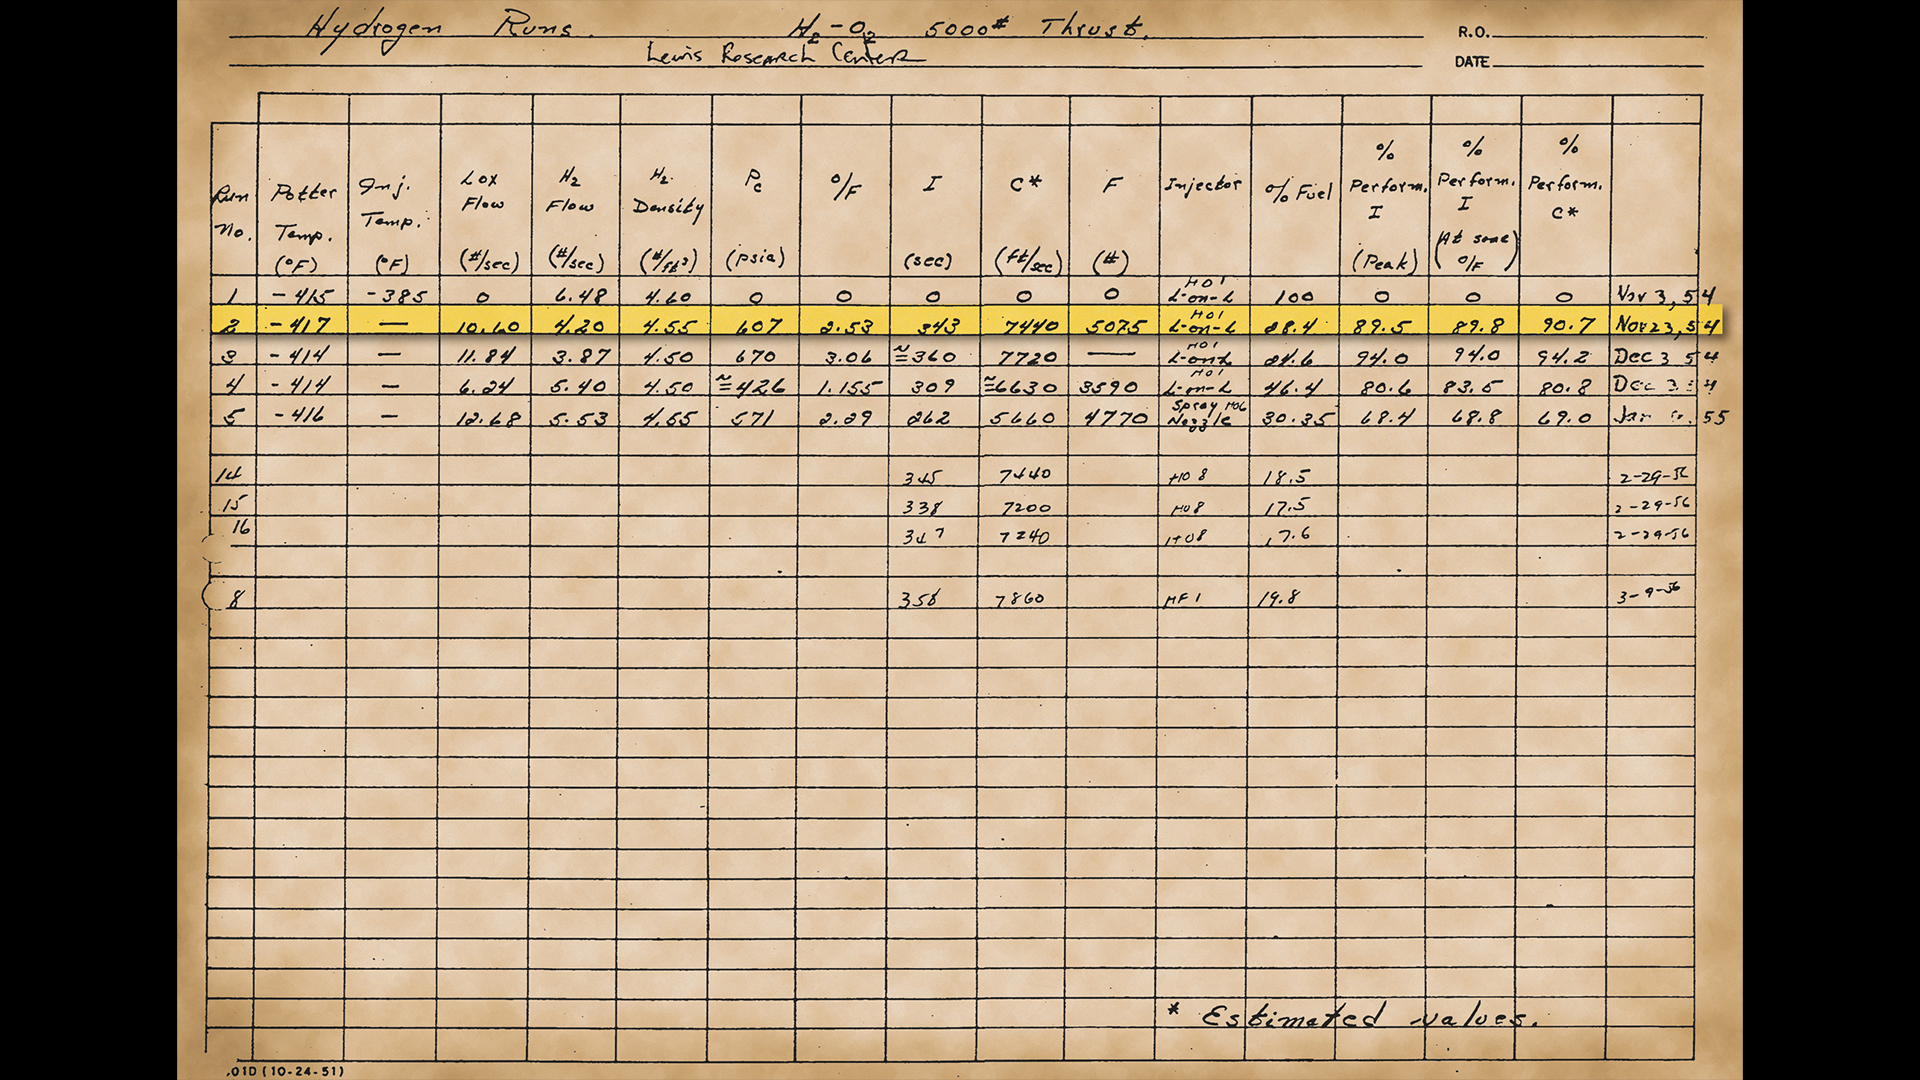 Hydrogen Runs. H₂-O₂ 5000# Thrust.
Lewis Research Center
R.O.
DATE
Run No. Potter Temp. (°F) Inj. Temp. (°F) Lox Flow (#/sec) H₂ Flow (#/sec) H₂ Density (#/ft³) Pc (psia) O/F I (sec) C* (ft/sec) F (#) Injector % Fuel % Perform. I (Peak) % Perform. I (At same O/F) % Perform. C*
1 -415 -385 0 6.48 4.60 0 0 0 0 0 HO1 L-on-L 100 0 0 0 Nov 3, 54
2 -417 — 10.60 4.20 4.55 607 2.53 343 7440 5075 HO1 L-on-L 28.4 89.5 89.8 90.7 Nov 23, 54
3 -414 — 11.84 3.87 4.50 670 3.06 ≅360 7720 — HO1 L-on-L 24.6 94.0 94.0 94.2 Dec 3 54
4 -414 — 6.24 5.40 4.50 ≅426 1.155 309 ≅6630 3590 HO1 L-on-L 46.4 80.6 83.5 80.8 Dec 3 54
5 -416 — 12.68 5.53 4.55 571 2.29 262 5660 4770 Spray Nozzle HO6 30.35 68.4 68.8 69.0 Jan 55
14 345 7440 HO8 18.5 2-29-56
15 338 7200 HO8 17.5 2-29-56
16 347 7240 HO8 17.6 2-29-56
8 358 7860 HF1 19.8 3-9-56
* Estimated values.
.01D (10-24-51)